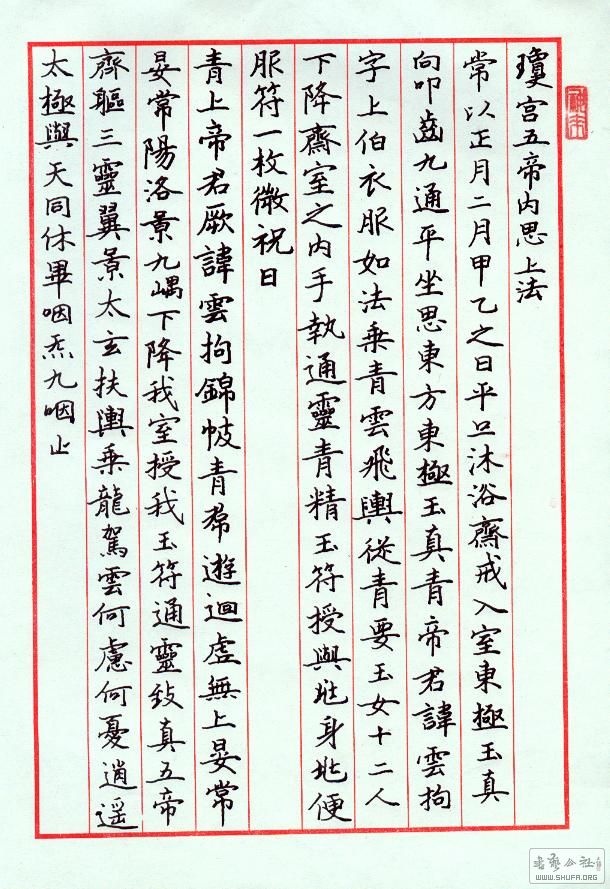 瓊宮五帝內思上法
常以正月二月甲乙之日平旦沐浴齋戒入室東極玉真
向叩齒九通平坐思東方東極玉真青帝君諱雲拘
字上伯衣服如法乘青雲飛輿從青要玉女十二人
下降齋室之內手執通靈青精玉符授與兆身兆便
服符一枚微祝曰
青上帝君厥諱雲拘錦帔青帬遊迴虛無上晏常
晏常陽洛景九嵎下降我室授我玉符通靈致真五帝
齊軀三靈翼景太玄扶輿乘龍駕雲何慮何憂逍遙
太極與天同休畢咽炁九咽止
WWW.SHUFA.ORG